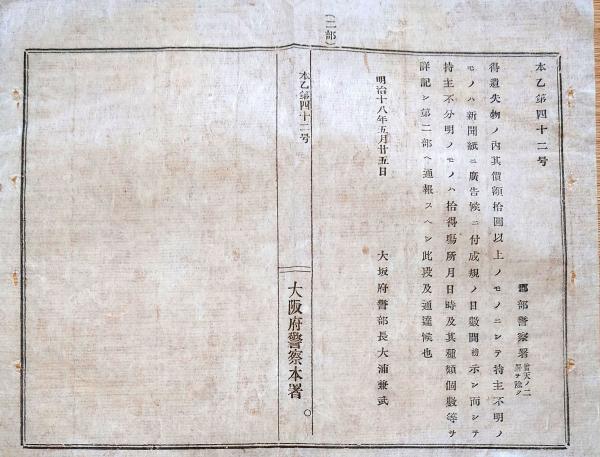 本乙第四十二号
郡部警察署
得遺失物ノ内其價額拾圓以上ノモノニシテ持主不明ノ
モノハ新聞紙ニ廣告候ニ付成規ノ日數間榜示シ而シテ
持主不分明ノモノハ拾得塲所月日時及其種類個數等ヲ
詳記シ第二部ヘ通報スヘシ此段及通達候也
明治十八年五月廿五日
大坂府警部長大浦兼武
(二部)
本乙第四十二号
大阪府警察本署